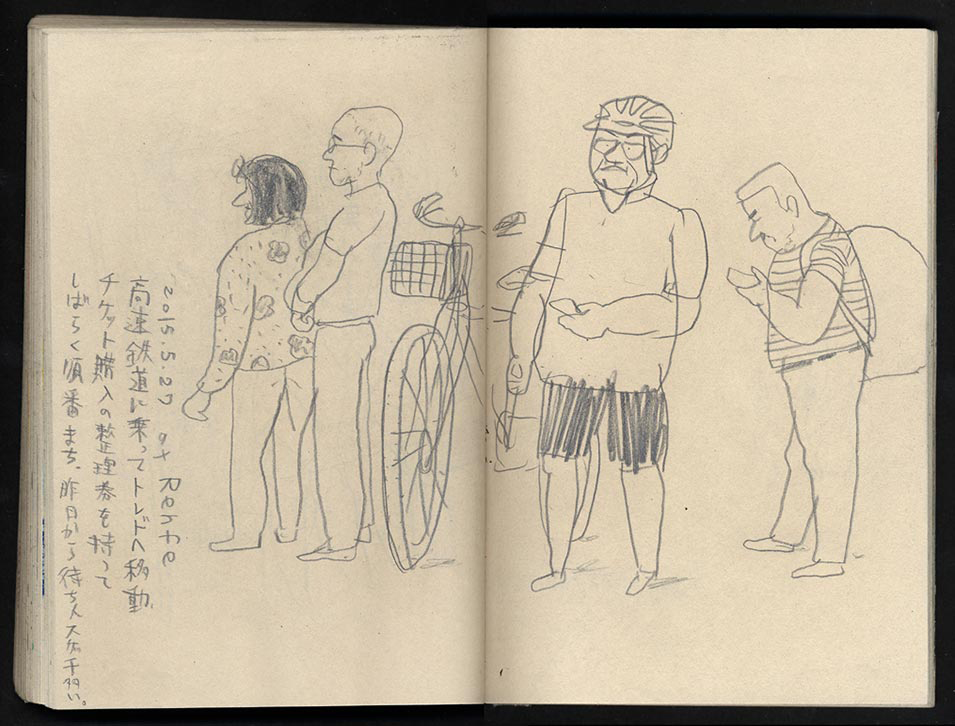 2015.5.27 at Renfe
高速鉄道に乗ってトレドへ移動
チケット購入の整理券を持って
しばらく順番まち、昨日から待ち人スケッチ多い。